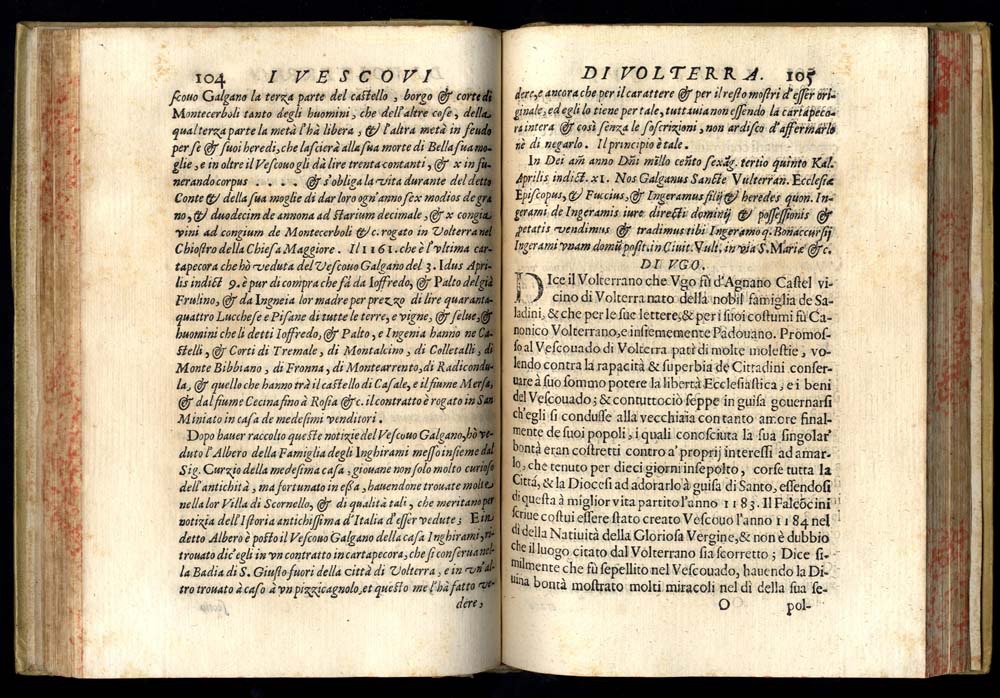 104 I VESCOVI
scouo Galgano la terza parte del castello, borgo & corte di
Montecerboli tanto degli huomini, che dell'altre cose, della
qual terza parte la metà l'hà libera, & l'altra metà in feudo
per se & suoi heredi, che lascierà alla sua morte di Bella sua mo-
glie, e in oltre il Vescouo gli dà lire trenta contanti, & x in fu-
nerando corpus . . . . . & s'obliga la vita durante del detto
Conte & della sua moglie di dar loro ogn'anno sex modios de gra
no, & duodecim de annona ad starium decimale, & x congia
vini ad congium de Montecerboli &c. rogato in Volterra nel
Chiostro della Chiesa Maggiore. Il 1161. che è l'vltima car-
tapecora che hò veduta del Vescouo Galgano del 3. Idus Apri-
lis indict 9. è pur di compra che fà da Ioffredo, & Palto del già
Frulino, & da Ingneia lor madre per prezzo di lire quaranta-
quattro Lucchese e Pisane di tutte le terre, e vigne, & selue, &
huomini che li detti Ioffredo, & Palto, e Ingenia hanno ne Ca-
stelli, & Corti di Tremale, di Montalcino, di Colletalli, di
Monte Bibbiano, di Fronna, di Montearrento, di Radicondu-
la, & quello che hanno trà il castello di Casale, e il fiume Mersa,
& dal fiume Cecina fino à Rosia &c. il contratto è rogato in San
Miniato in casa de medesimi venditori.
Dopo hauer raccolto queste notizie del Vescouo Galgano, hò ve-
duto l'Albero della Famiglia degli Inghirami messo insieme dal
Sig. Curzio della medesima casa, giouane non solo molto curioso
dell'antichità, ma fortunato in essa, hauendone trouate molte
nella lor Villa di Scornello, & di qualità tali, che meritano per
notizia dell'Istoria antichissima d'Italia d'esser vedute; E in
detto Albero è posto il Vescouo Galgano della casa Inghirami, ri-
trouato dic'egli in vn contratto in cartapecora, che si conserua nel-
la Badia di S. Giusto fuori della città di Volterra, e in vn'al-
tro trouato à caso à vn pizzicagnolo, et questo me l'hà fatto ve-
dere,
DI VOLTERRA. 105
dere, e ancora che per il carattere & per il resto mostri d'esser ori-
ginale, ed egli lo tiene per tale, tuttauia non essendo la cartapeco-
ra intera & così senza le soscrizioni, non ardisco d'affermarlo
nè di negarlo. Il principio è tale.
In Dei am̄ anno Dn̄i millo cen̄to sexag̃. tertio quinto Kal.
Aprilis indict. XI. Nos Galganus Sanctę Vulterran. Ecclesiæ
Episcopus, & Fuccius, & Ingeramus filij & heredes quon. In-
gerami de Ingeramis iure directi dominij & possessionis &
petatis vendimus & tradimus tibi Ingeramo q. Bonaccursij
Ingerami vnam domū posit. in Ciuit. Vult. in via S. Mariæ &c.
DI VGO.
DIce il Volterrano che Vgo fù d'Agnano Castel vi
cino di Volterra nato della nobil famiglia de Sa-
ladini, & che per le sue lettere, & per i suoi costumi fù Ca-
nonico Volterrano, e insiememente Padouano. Promos-
so al Vescouado di Volterra patì di molte molestie, vo-
lendo contra la rapacità & superbia de Cittadini conser-
uare à suo sommo potere la libertà Ecclesiastica, e i beni
del Vescouado; & contuttociò seppe in guisa gouernarsi
ch'egli si condusse alla vecchiaia con tanto amore final-
mente de suoi popoli, i quali conosciuta la sua singolar'
bontà eran costretti contro a' proprij interessi ad amar-
lo, che tenuto per dieci giorni insepolto, corse tutta la
Città, & la Diocesi ad adorarlo à guisa di Santo, essendosi
di questa à miglior vita partito l'anno 1183. Il Falcōcini
scriue costui essere stato creato Vescouo l'anno 1184 nel
dì della Natiuità della Gloriosa Vergine, & non è dubbio
che il luogo citato dal Volterrano sia scorretto; Dice si-
milmente che fù sepellito nel Vescouado, hauendo la Di-
uina bontà mostrato molti miracoli nel dì della sua se-
O pol-